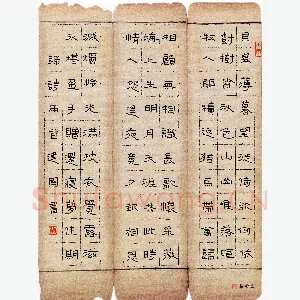 東皋薄暮望徙倚欲何依
樹樹皆秋色山山唯落暉
牧人驅犢返獵馬帶禽歸
相顧無相識長歌懷采薇
海上生明月天涯共此時
情人怨遙夜竟夕起相思
滅燭憐光滿披衣覺露滋
不堪盈手贈還寢夢佳期